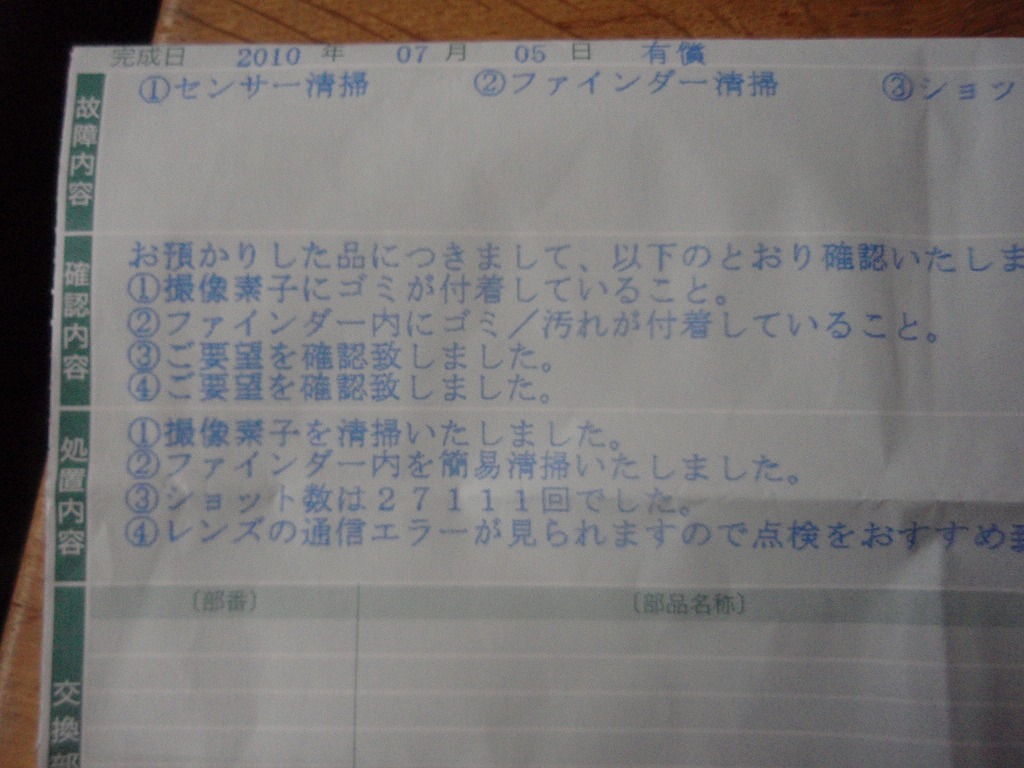 完成日 2010 年 07 月 05 日 有償
故障内容
①センサー清掃 ②ファインダー清掃 ③ショッ
確認内容
お預かりした品につきまして、以下のとおり確認いたしま
①撮像素子にゴミが付着していること。
②ファインダー内にゴミ／汚れが付着していること。
③ご要望を確認致しました。
④ご要望を確認致しました。
処置内容
①撮像素子を清掃いたしました。
②ファインダー内を簡易清掃いたしました。
③ショット数は２７１１１回でした。
④レンズの通信エラーが見られますので点検をおすすめ
交換部
〔部番〕 〔部品名称〕